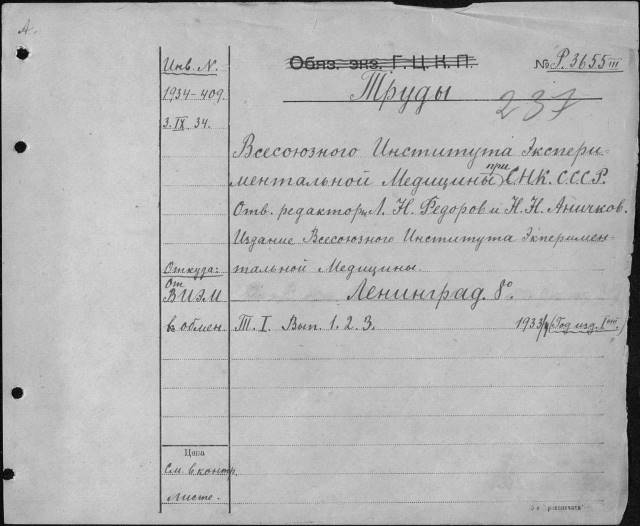 А.
Обяз. экз. Г. Ц. К. П.
№ Р. 3655 III
Труды
237
Инв. N.
1934-409.
3. IX 34.
Всесоюзного Института Экспери-
ментальной Медицины при С.Н.К. С.С.С.Р.
Отв. редакторы Л. Н. Федоров и Н. Н. Аничков.
Издание Всесоюзного Института Эксперимен-
тальной Медицины.
Откуда:
от
ВИЭМ
в обмен.
Ленинград. 8°.
Т. I. Вып. 1. 2. 3.
1933/ (Год изд. I ый.)
Цена
См. в контр.
листе.